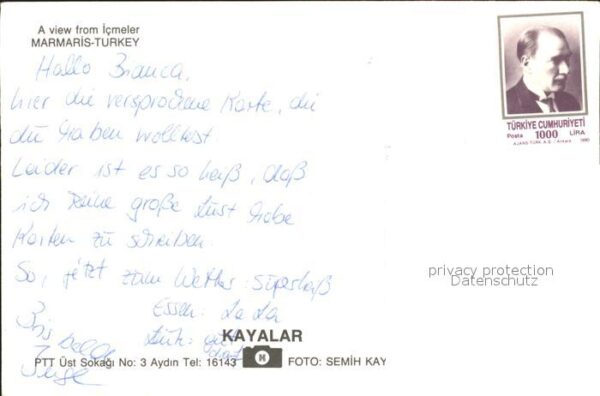 A view from İçmeler
MARMARİS-TURKEY
Hallo Bianca,
hier die versprochene Karte, die
du haben wolltest.
Leider ist es so heiß, daß
ich keine große Lust habe
Karten zu schreiben.
So, jetzt zum Wetter: superheiß
Essen: La La
Bis bald
KAYALAR
PTT Üst Sokağı No: 3 Aydın Tel: 16143
M
FOTO: SEMİH KAY
TÜRKİYE CUMHURİYETİ
Posta 1000 LİRA
AJANS-TÜRK A.Ş. / Ankara 1990
privacy protection
Datenschutz